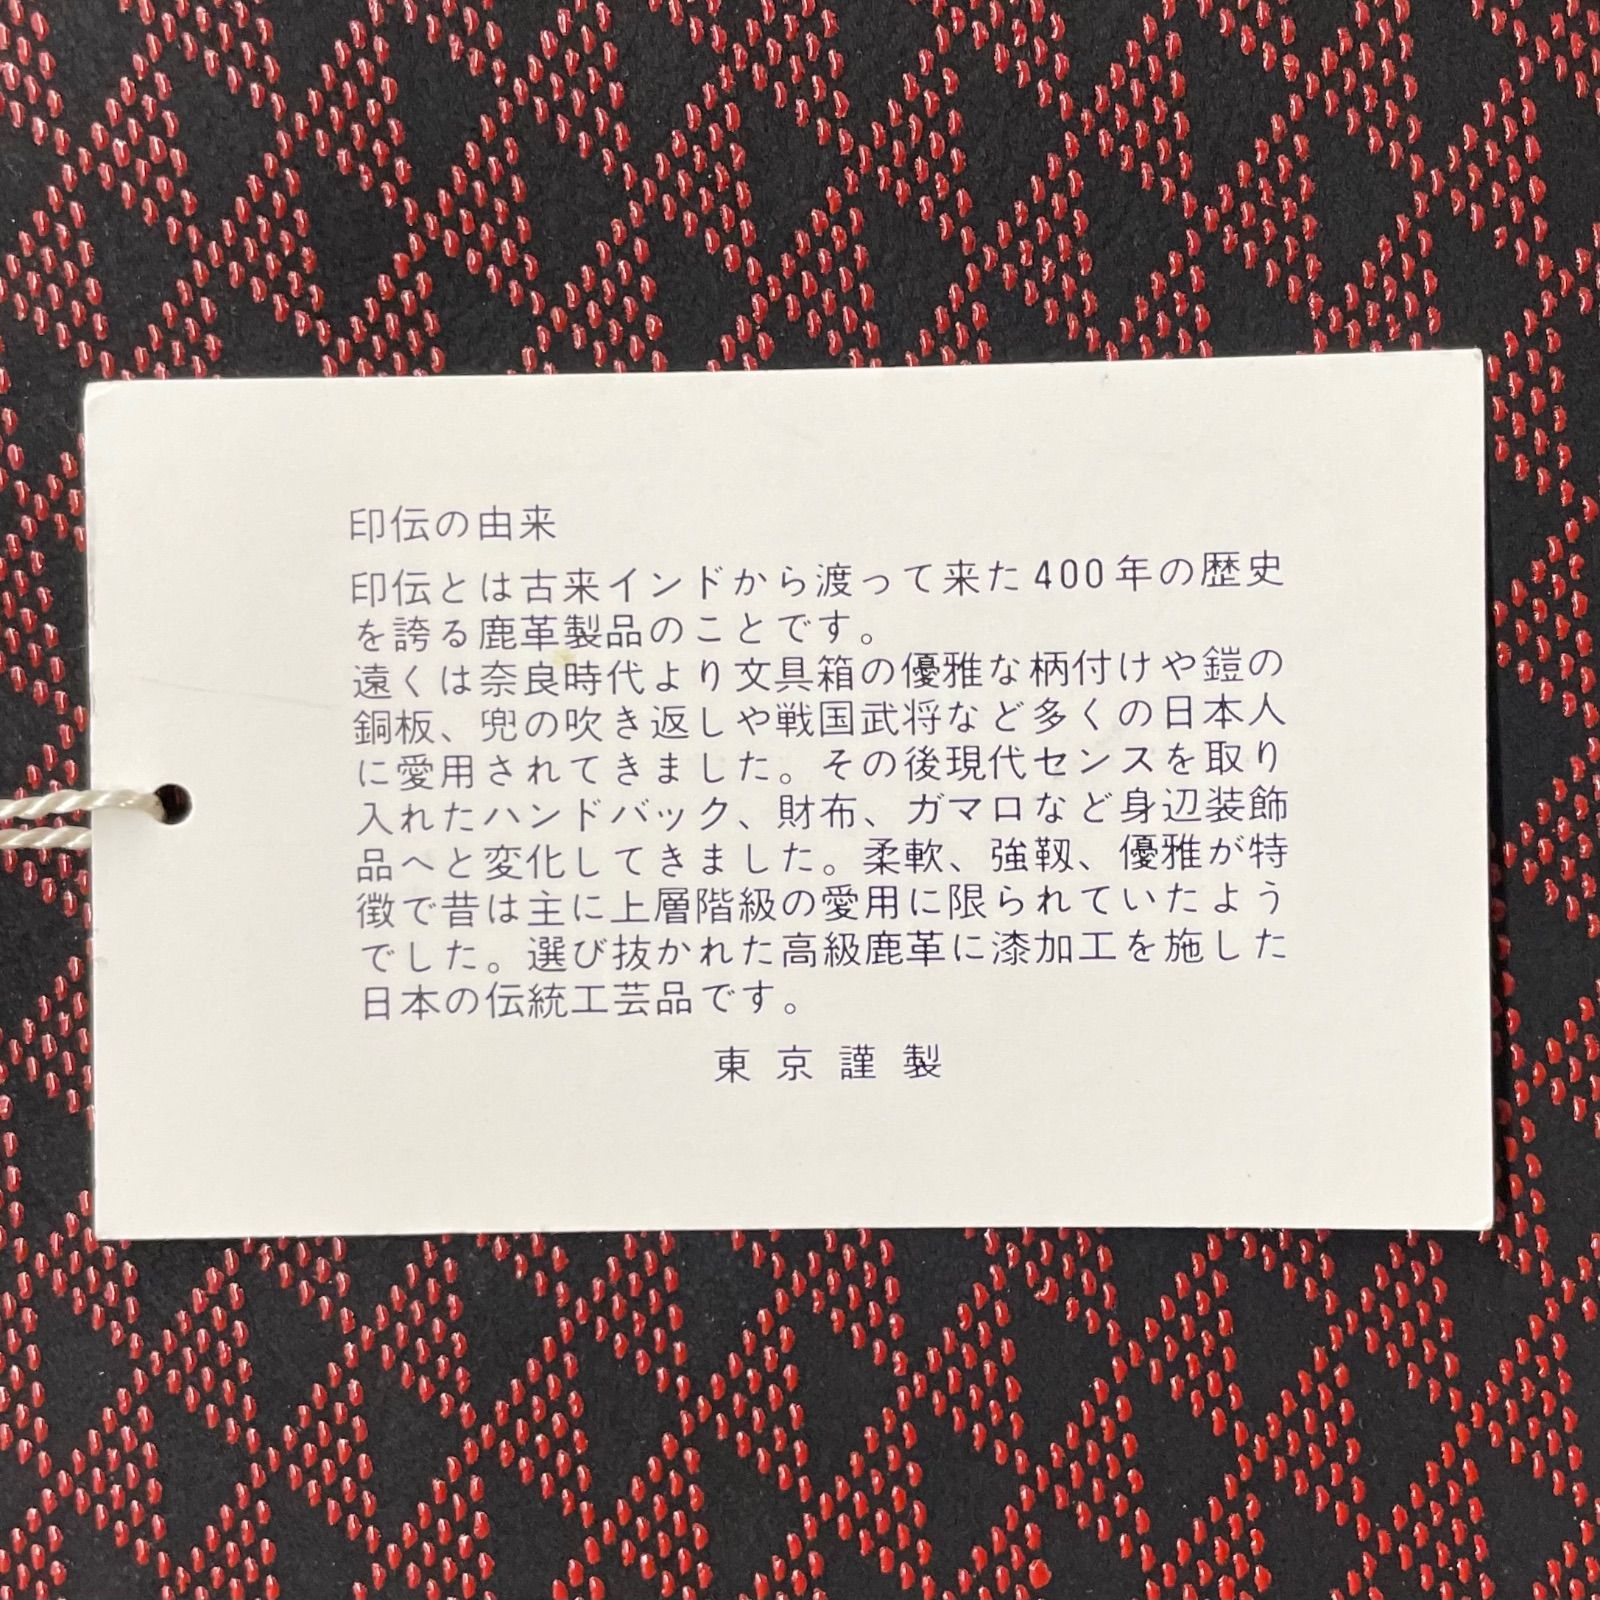 印伝の由来
印伝とは古来インドから渡って来た400年の歴史
を誇る鹿革製品のことです。
遠くは奈良時代より文具箱の優雅な柄付けや鎧の
銅板、兜の吹き返しや戦国武将など多くの日本人
に愛用されてきました。その後現代センスを取り
入れたハンドバック、財布、ガマロなど身辺装飾
品へと変化してきました。柔軟、強靱、優雅が特
徴で昔は主に上層階級の愛用に限られていたよう
でした。選び抜かれた高級鹿革に漆加工を施した
日本の伝統工芸品です。
東京謹製